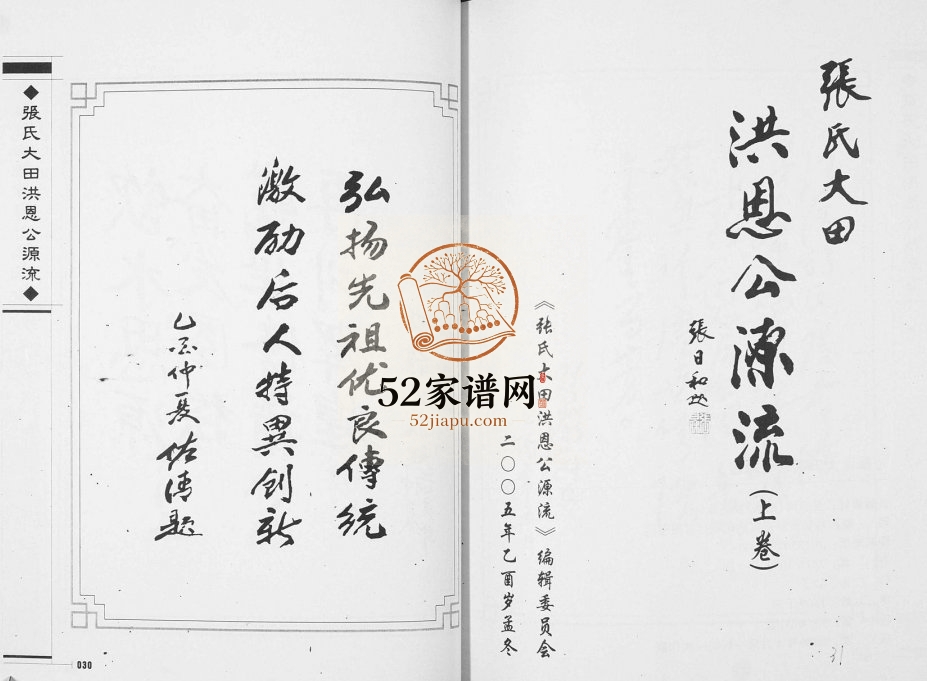 張氏大田
洪恩公源流(上卷)
張日和
《张氏大田洪恩公源流》编辑委员会
二〇〇五年乙酉岁孟冬
31
弘扬先祖优良傳統
激励后人特異創新
乙酉仲夏佑清题
◆張氏大田洪恩公源流◆
030
52家谱网
52jiapu.com